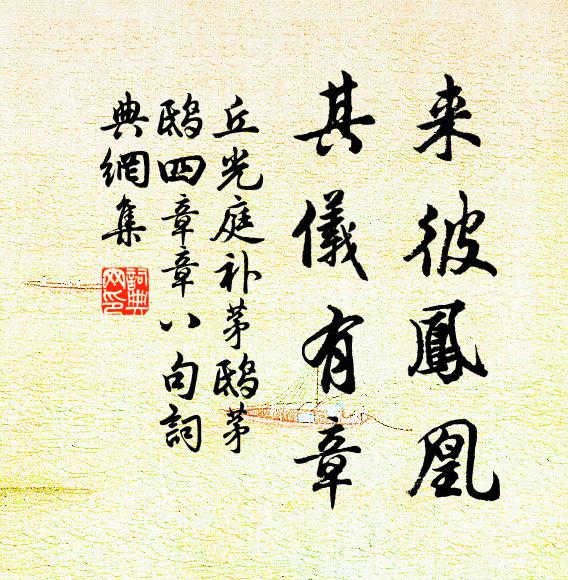 来彼鳳凰
其儀有章
丘光庭补茅鴟茅
鴟四章章八句詞
典網集
詞典
网印